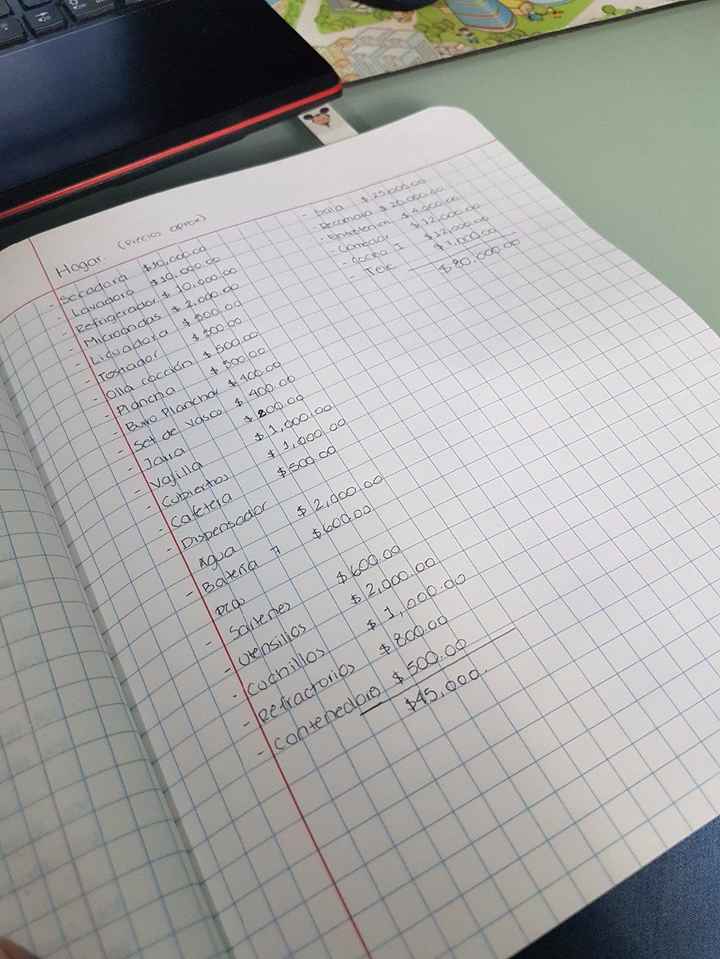 Hogar. (Precio aprox)
- Secadora $10,000.00
- Lavadora $10,000.00
- Refrigerador $10,000.00
- Microondas $2,000.00
- Licuadora $500.00
- Tostador $500.00
- Olla cocción $500.00
- Plancha $500.00
- Buro Planchar $400.00
- Set de vasos $400.00
- Jarra $200.00
- Vajilla $1,000.00
- Cubiertos $1,000.00
- Cafetera $500.00
- Dispensador
Agua $2,000.00
- Batería 7
pzas $600.00
- Sartenes $600.00
- Utensilios $2,000.00
- Cuchillos $1,000.00
- Refractorios $800.00
- Contenedores $500.00
$45,000.
- Sala $25,000.00
- Recamara $20,000.00
$4,000.00
$12,000.00
$12,000.00
- Tele $7,000.00
$80,000.00